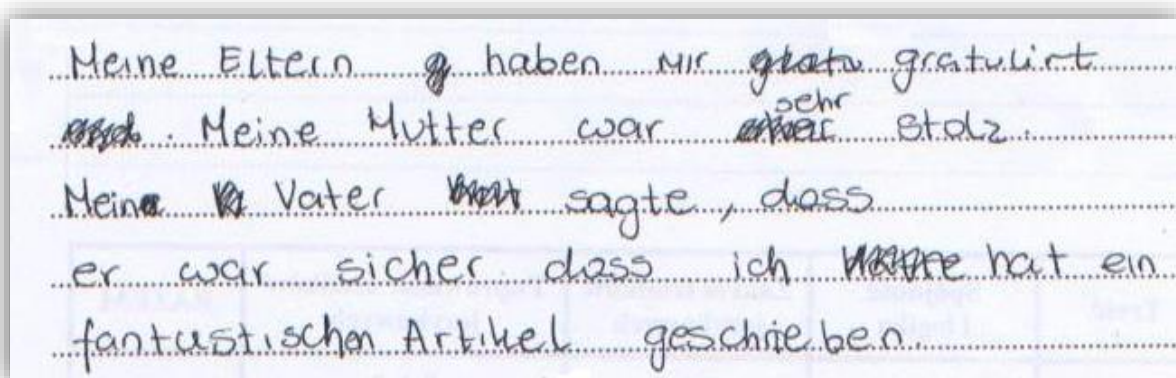 Meine Eltern haben mir gratulirt
. Meine Mutter war sehr stolz.
Mein Vater sagte, dass
er war sicher dass ich hat ein
fantastischen Artikel geschrieben